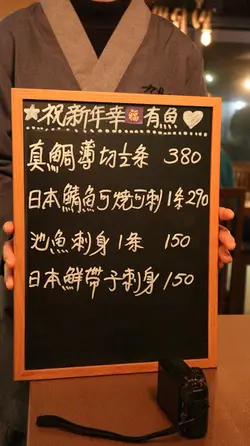 ★祝新年幸福有魚♡
真鯛薄切½条 380
日本鯖魚可燒可刺1条290
池魚刺身1条 150
日本鮮帶子刺身150